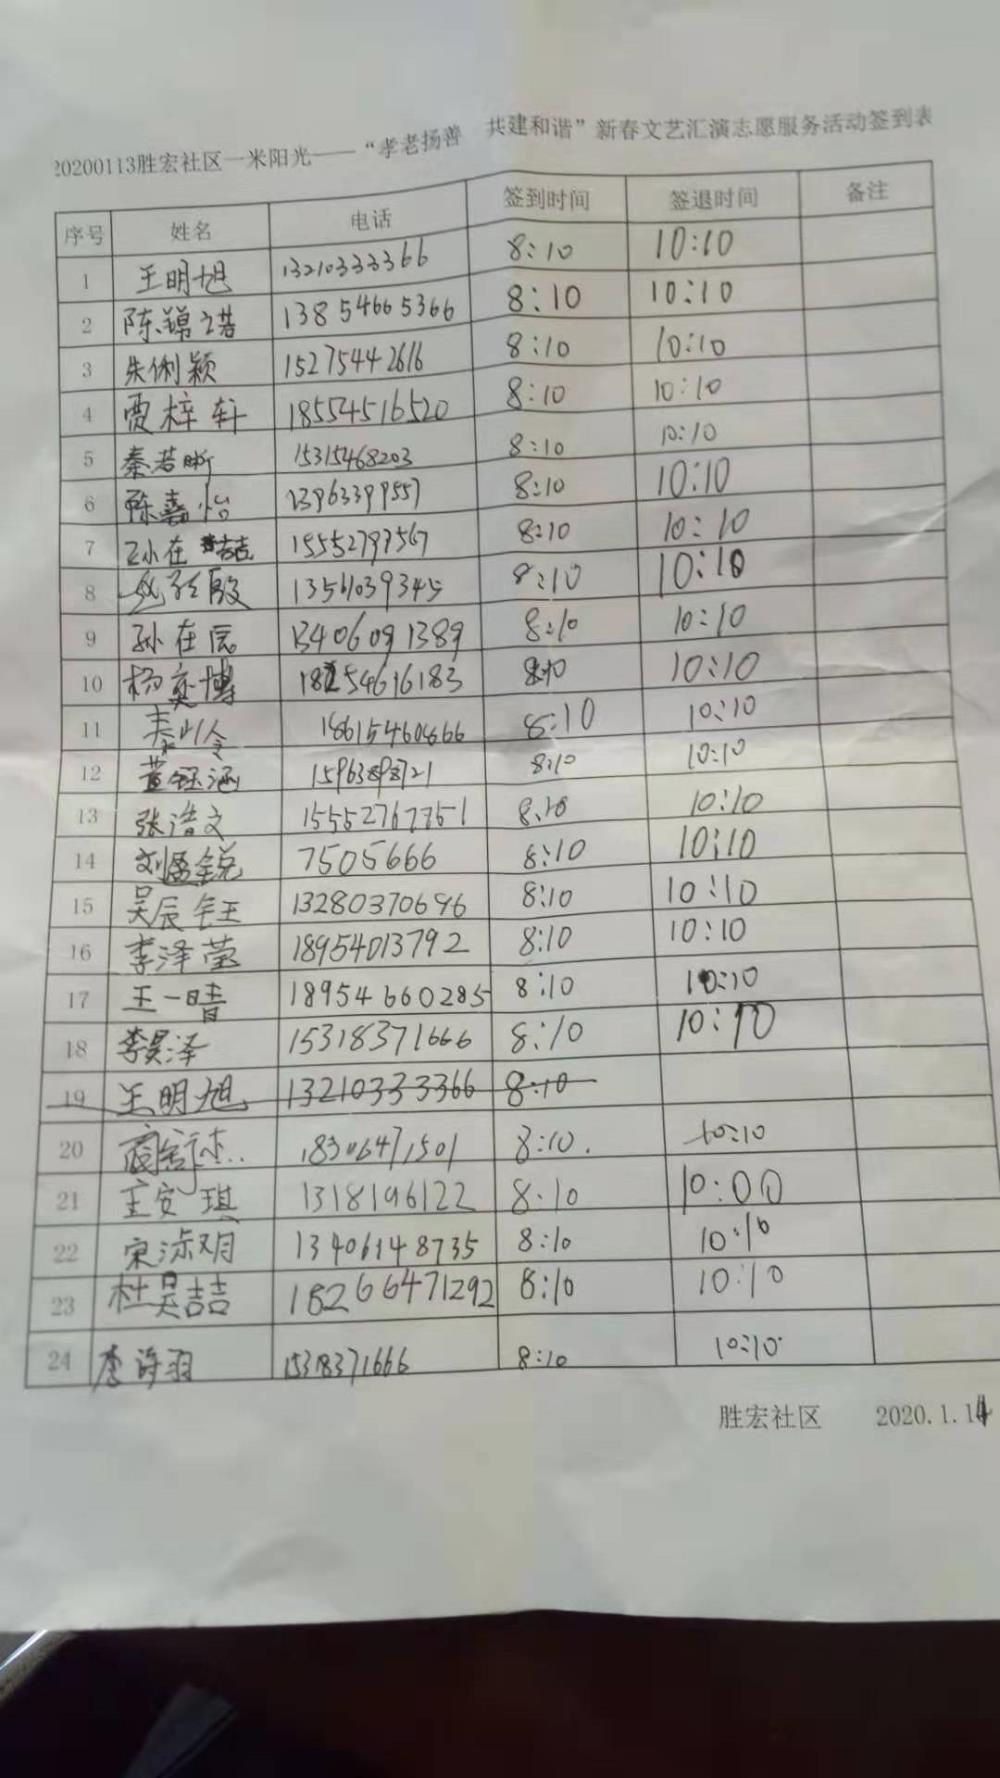 20200113胜宏社区一米阳光——“孝老扬善 共建和谐”新春文艺汇演志愿服务活动签到表
序号 姓名 电话 签到时间 签退时间 备注
1 王明旭 13210333366 8:10 10:10
2 陈锦诺 13854665366 8:10 10:10
3 朱俐颖 15275442616 8:10 10:10
4 贾梓轩 18554516520 8:10 10:10
5 秦若晰 15315468203 8:10 10:10
6 陈嘉怡 13963399557 8:10 10:10
7 15552797567 8:10 10:10
8 13561039345 8:10 10:10
9 孙在辰 13406091389 8:10 10:10
10 杨奕博 18254616183 8:10 10:10
11 8:10 10:10
12 董钰涵 8:10 10:10
13 张浩文 15552767751 8:10 10:10
14 刘孟锐 7505666 8:10 10:10
15 吴辰钰 13280370696 8:10 10:10
16 李泽莹 18954013792 8:10 10:10
17 王一晴 18954660285 8:10 10:10
18 李昊泽 15318371666 8:10 10:10
19 王明旭 13210333366 8:10
20 18306471501 8:10. 10:10
21 王安琪 1318196122 8:10 10:00
22 宋添玥 13406148735 8:10 10:10
23 杜昊喆 18266471292 8:10 10:10
24 李诗羽 15318371666 8:10 10:10
胜宏社区 2020.1.14